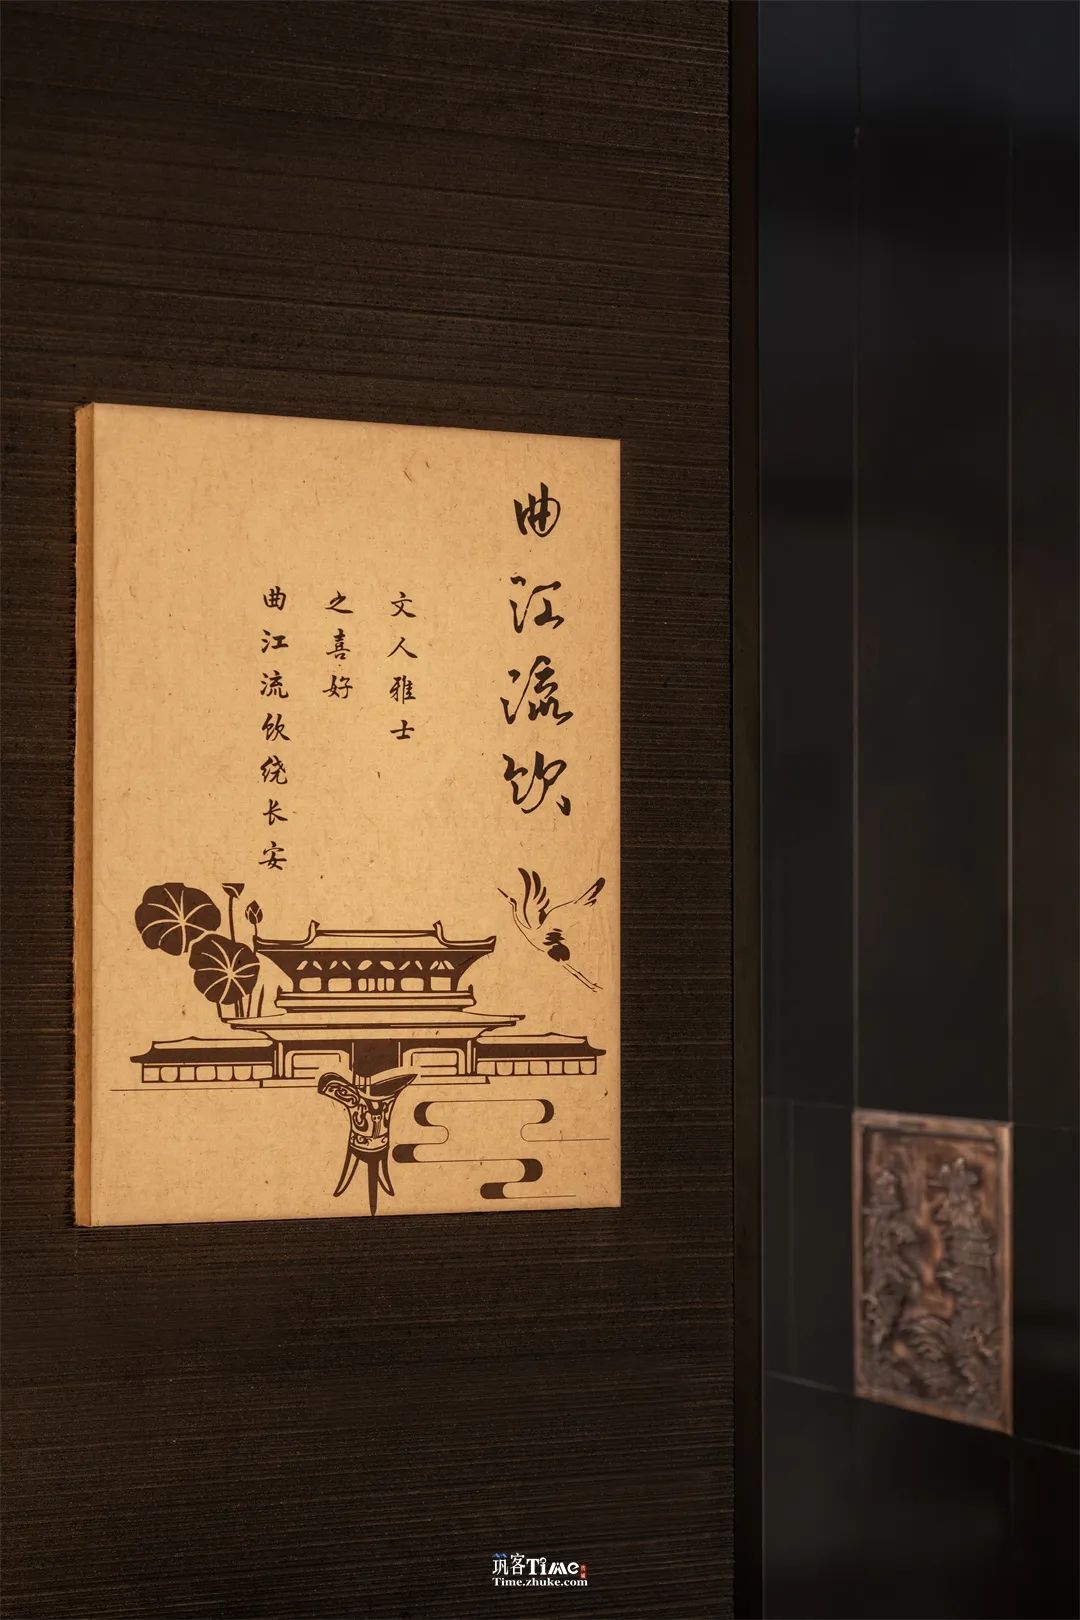 曲江流饮
文人雅士
之喜好
曲江流饮绕长安
筑客Time
Time.zhuke.com